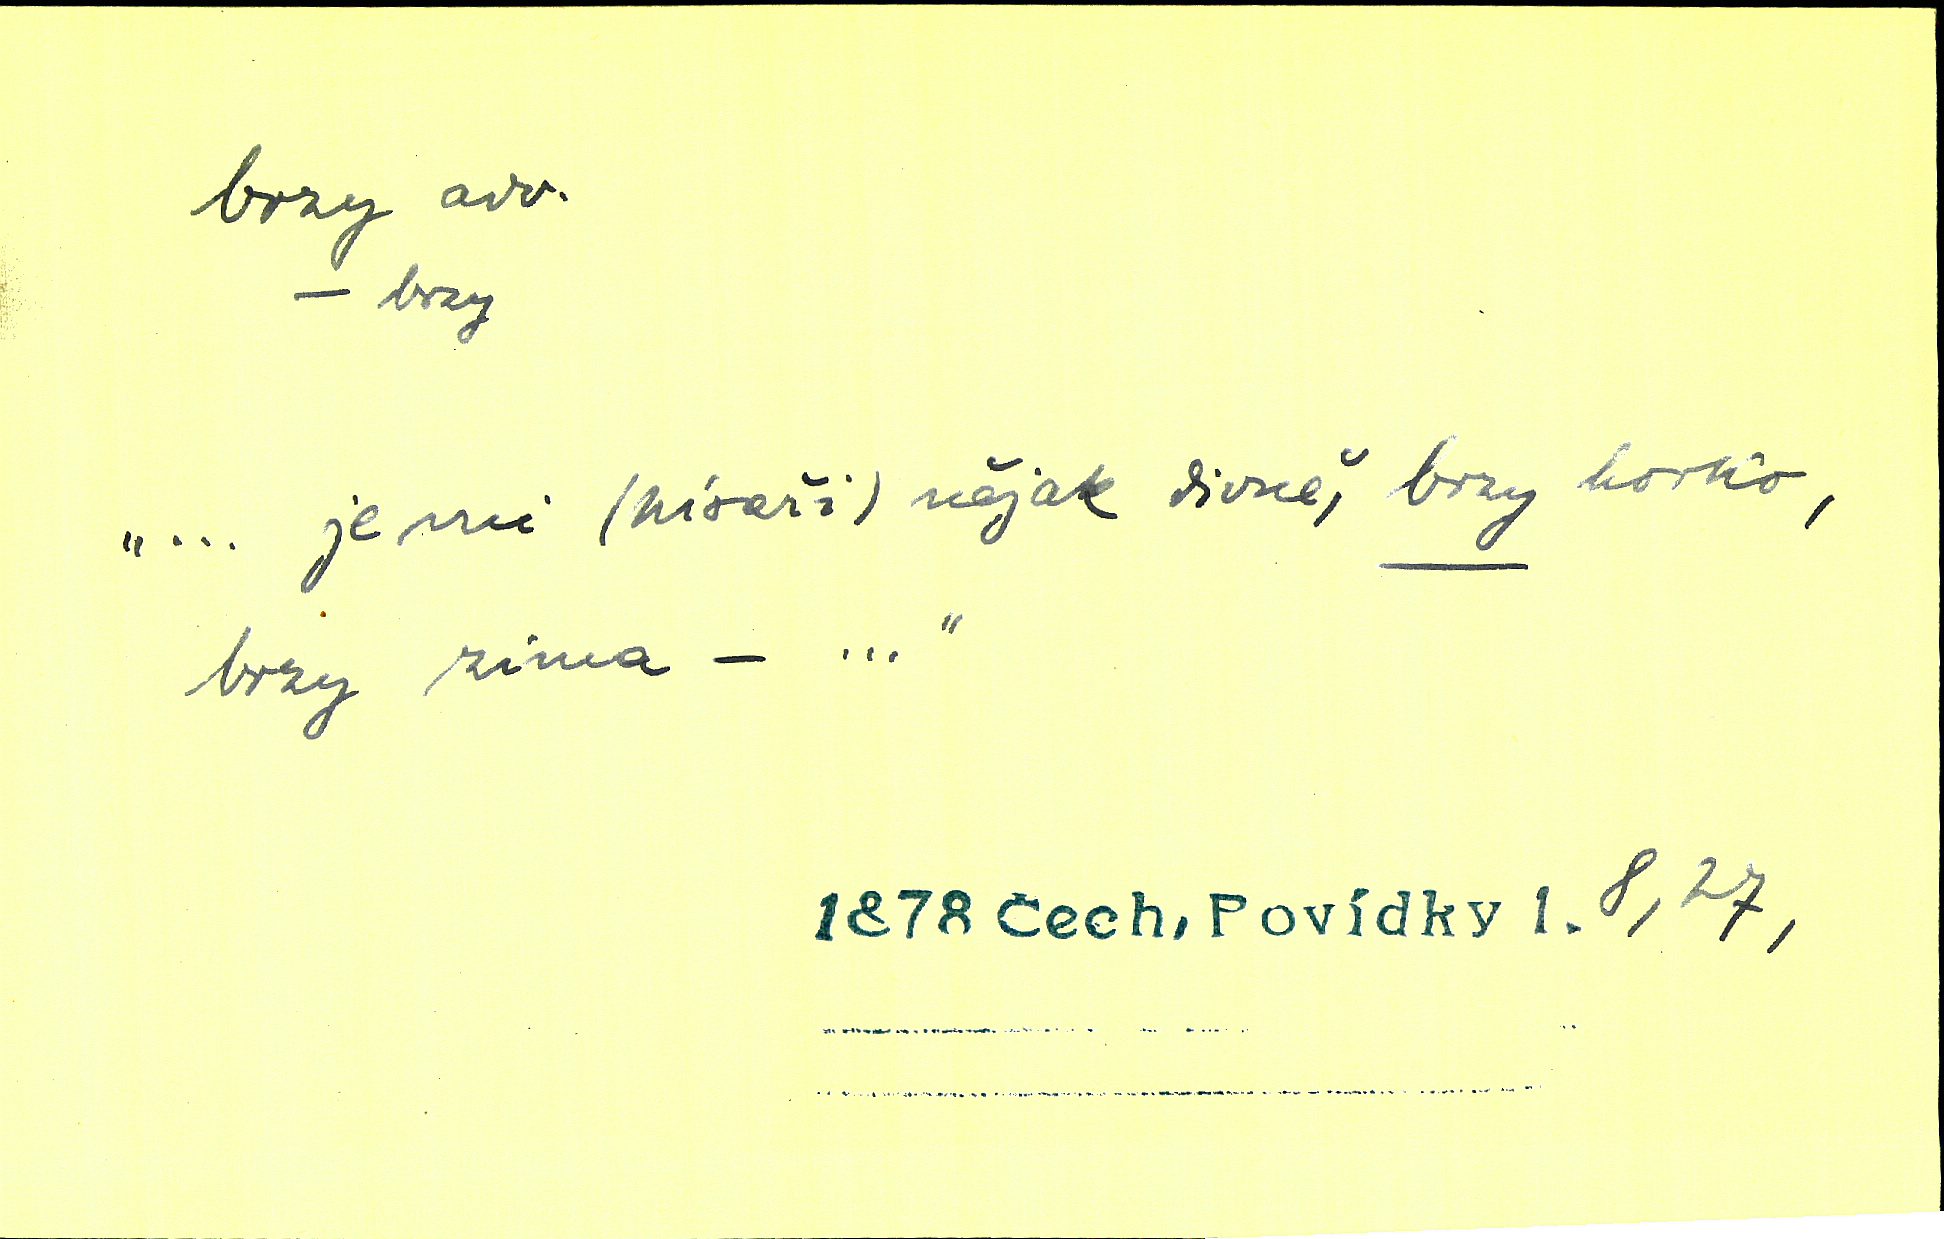 brzy adv.
— brzy
„... je mi (písaři) nějak divně, brzy horko,
brzy zima — ...“
1878 Čech, Povídky 1. 8, 27,